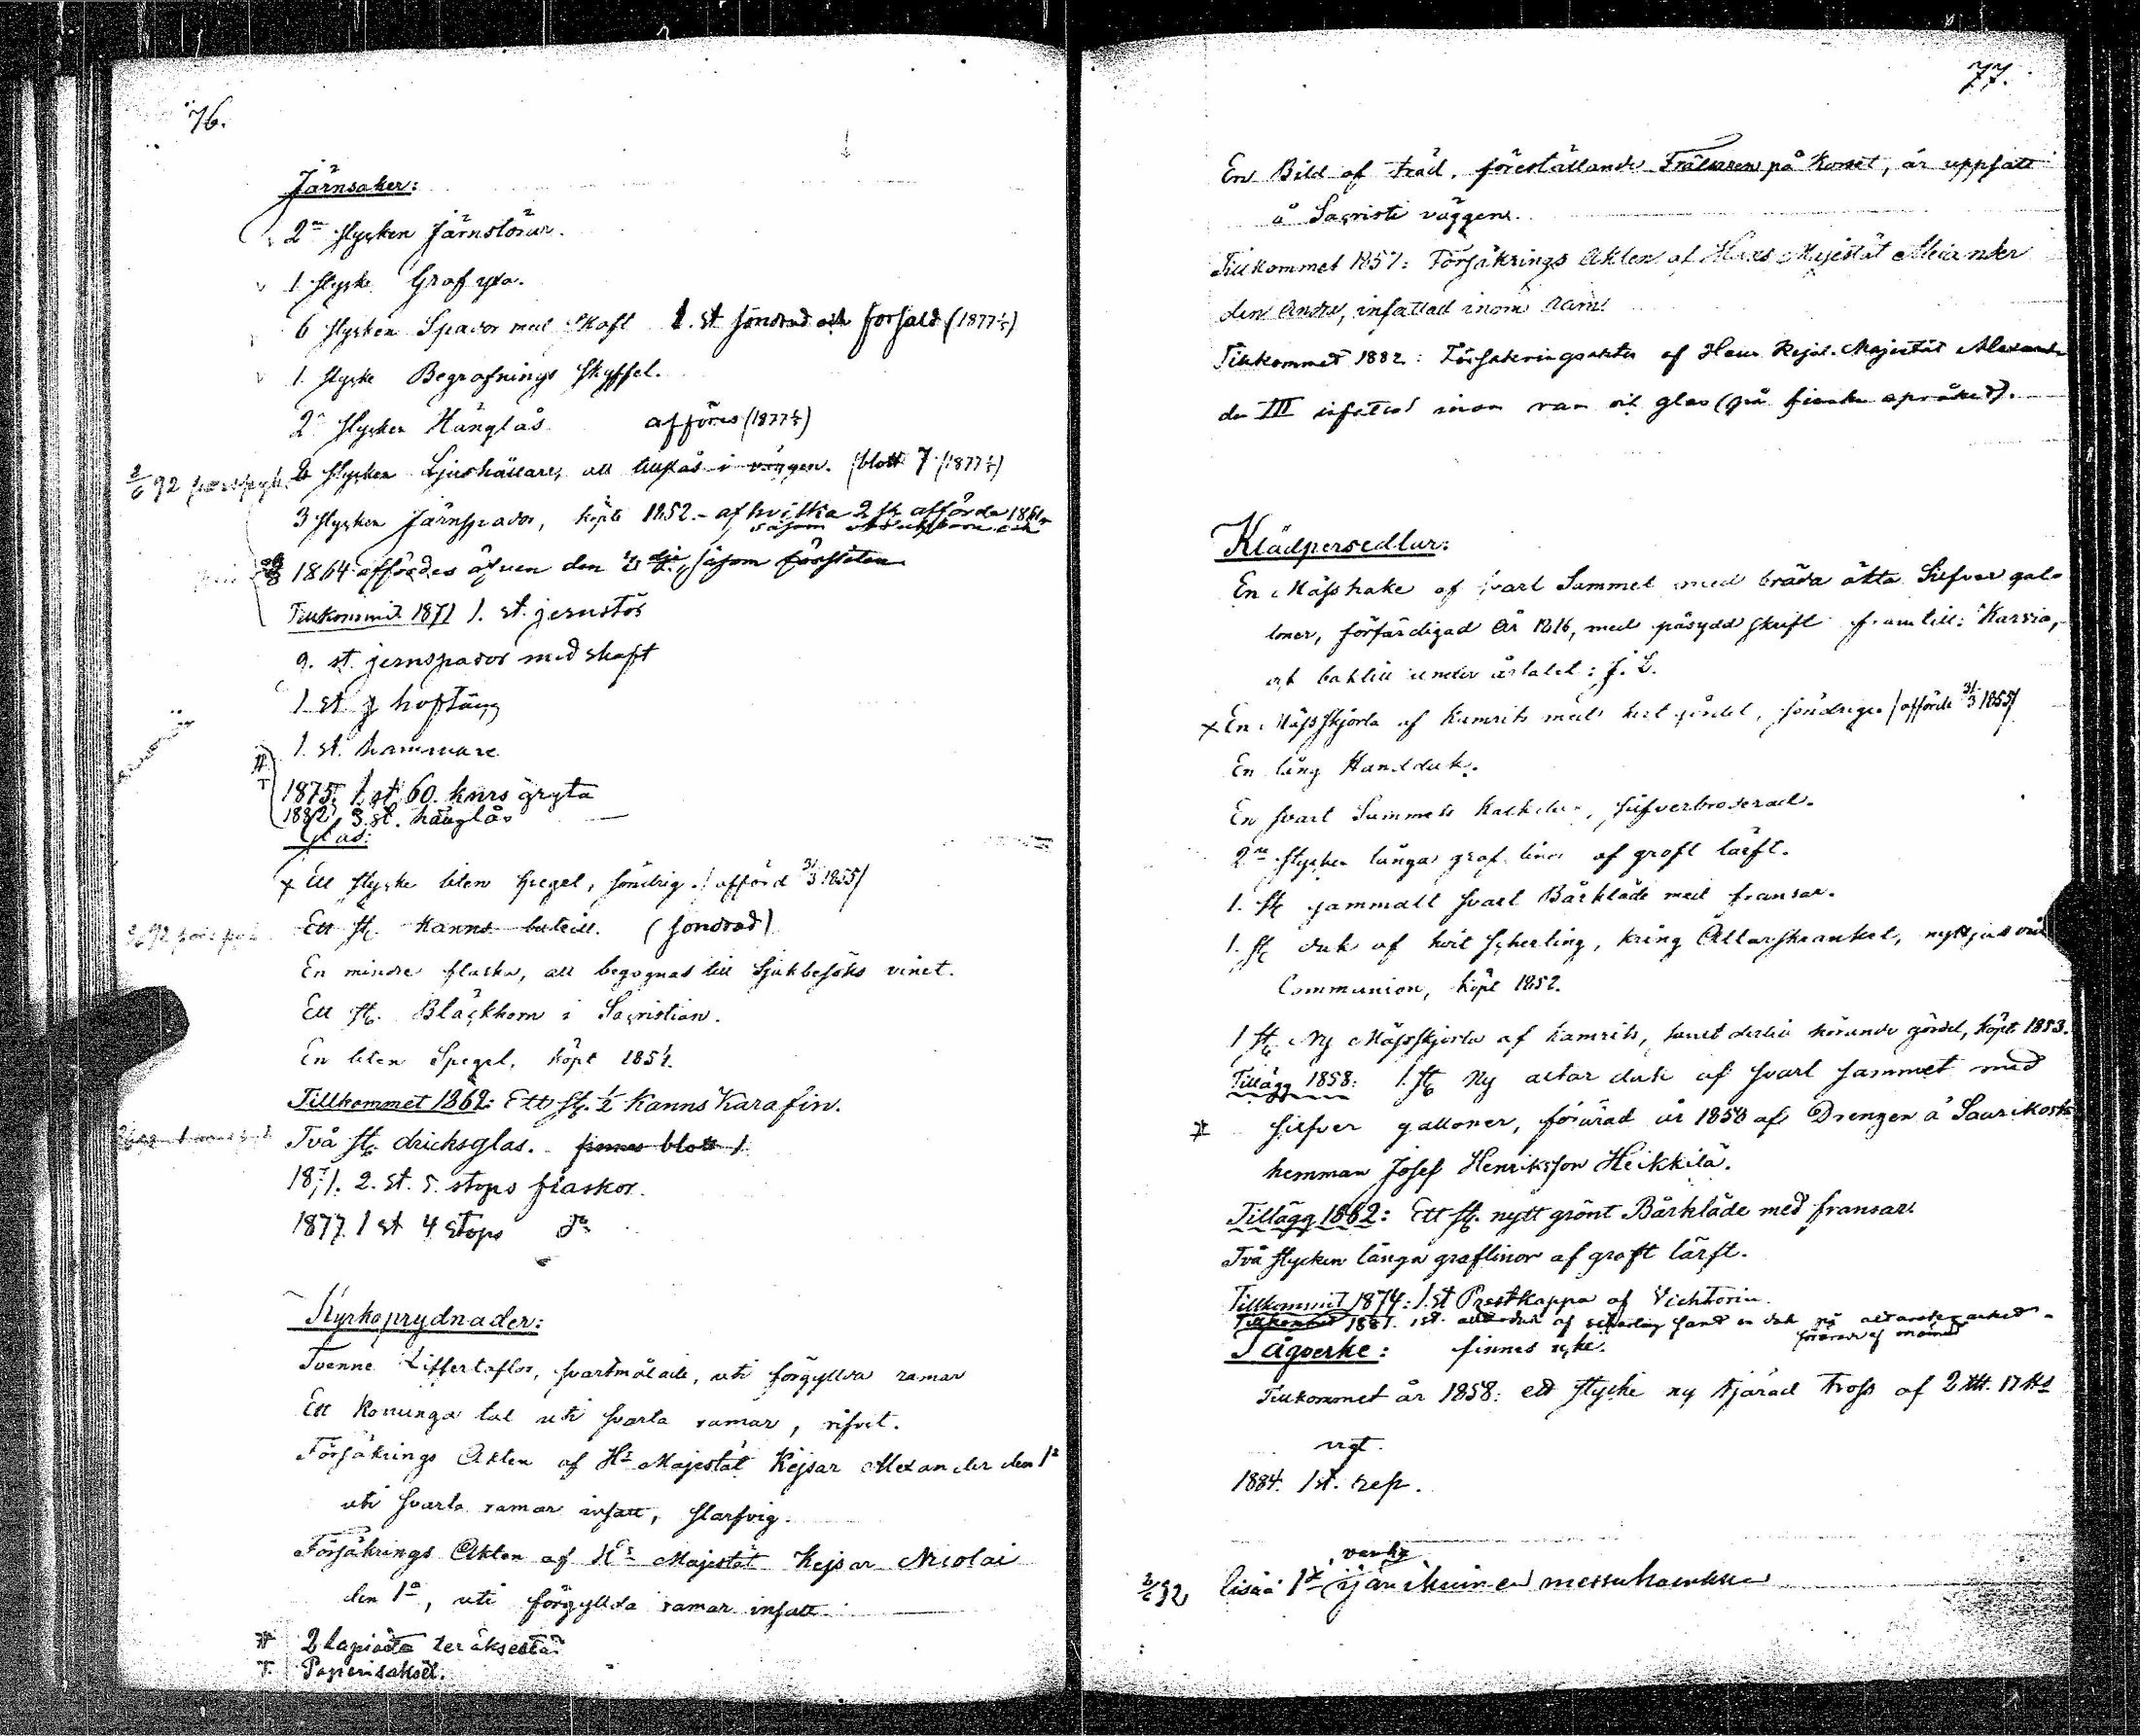 76.
Järnsaker:
2ne stycken Järnstörar.
1 stycke Grafyxa.
6 stycken Spador med skaft 1. st söndrad och forsåld (1877 )
1. stycke Begrafnings skyffel.
2ne stycken Hänglås. afföres (1877 )
8 stycken Ljushållare, att tillslås i väggen. (blott 7 (1877 )
2/6 92
3 stycken Järnspador, köpte 1852. - af hvilka 2 st. afförda 1861
såsom och
1864 affördes äfven den 3dje, såsom försliten
Tillkommit 1871 1. st. jernstör
9. st. jernspador med skaft
1 st hoftång
1. st. hammare
1875. 1. st. 60. knrs gryta
1882. 3. st. hänglås
Glas:
x Ett stycke liten spegel, söndrig. / afförd 31/3 1855/
Ett st. Kanns buteill. (söndrad)
En mindre flaska, att begagnas till sjukbesöks vinet.
Ett st. Bläckhorn i Sacristian.
En liten Spegel, köpt 1854.
Tillkommet 1862: Ett st. ½ Kanns Karafin.
Två st. dricksglas. finnes blott 1.
1871. 2. st. 5. stops flaskor.
1877. 1 st 4 stops do
Kyrkoprydnader:
Tvenne Ziffertaflor, svartmålade, uti förgyllda ramar
Ett Konunga tal uti svarta ramar, rifvet.
Försäkrings Akten af Hs Majestät Kejsar Alexander den 1a
uti svarta ramar infatt, slarfvig.
Försäkrings Akten af Hs Majestät Kejsar Nicolai
den 1a, uti förgyllda ramar infatt
2 lapiota teräksestä
T. Paperisakset.
77.
En Bild af träd, föreställande Frälsaren på Korset, är uppsatt
å Sacristi väggen.
Tillkommet 1857: Försäkrings Akten af Hans Majestät Alexander
den Andre, infattad inom ram.
Tillkommet 1882: Försäkringsakten af Hans Kejs. Majestät Alexander
den III infattad inom ram och glas (på finska språket).
Klädpersedlar:
En Mässhake af svart Sammet med breda äkta Silfver gal-
loner, förfärdigad År 1816, med påsydd skrift framtill: Karvia,
och baktill under årtalet: J. L.
x En Mässskjorta af Kamrits med gördel, söndriga / afförde 31/3 1855/
En lång Handduk.
En svart Sammets Kalkduk, silfverbroderad.
2ne stycken långa graf linor af groft lärft.
1. st gammalt svart Bårkläde med fransar.
1. st duk af hvit Scherting, kring Altarskranket, nyttjas vid
Communion, köpt 1852.
1 st. Ny Mässskjorta af kamrits, samt dertill hörande gördel, köpt 1853.
Tillägg 1858: 1. st Ny altar duk af svart sammet med
silfver galloner, förärad år 1858 af Drengen å Saurikoski
hemman Josef Henriksson Heikkilä.
Tillägg 1862: Ett st. nytt grönt Bårkläde med fransar.
Två stycken långa graflinor af groft lärft.
Tillkommit 1874: 1. st Prestkappa af Vichtoria
Tillkommet 1881. 1 st. altarduk af scherting samt en duk på
förärad af
Tågverke: finnes icke.
Tillkommet år 1858: ett stycke ny tjärad Tross af 2 17
vigt.
1884. 1 st. rep.
vanha
2/6 92 lisää 1 messukasukka